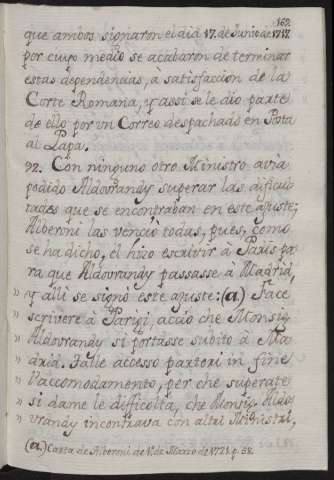 169.
que ambos signaron el dia 17. de Junio de 1717.
por cuyo medio se acabaron de terminar
estas dependencias, a satisfaccion de la
Corte Romana, y assi se le dio parte
de ello por un Correo despachado en Posta
al Papa.
92. Con ninguno otro Ministro avia
podido Aldovrandy superar las dificul
tades que se encontraban en este ajuste;
Alberoni las venció todas, pues, como
se ha dicho, el hizo escrivir à Paris pa
ra que Aldovrandy passasse à Madrid,
" y alli se signó este ajuste: (a.) Face
" scrivere à Parigi, acciò che Monsig.
" Aldovrandy si portasse subito à Ma
" dria. Talle accesso partori in fine
" l'accomodamento, per che superate
" si da me le difficoltà, che Monsig. Aldo
" vrandy incontrava con altri Ministri,
(a.) Carta de Alberoni de 1.º de Marzo de 1721. p. 58.